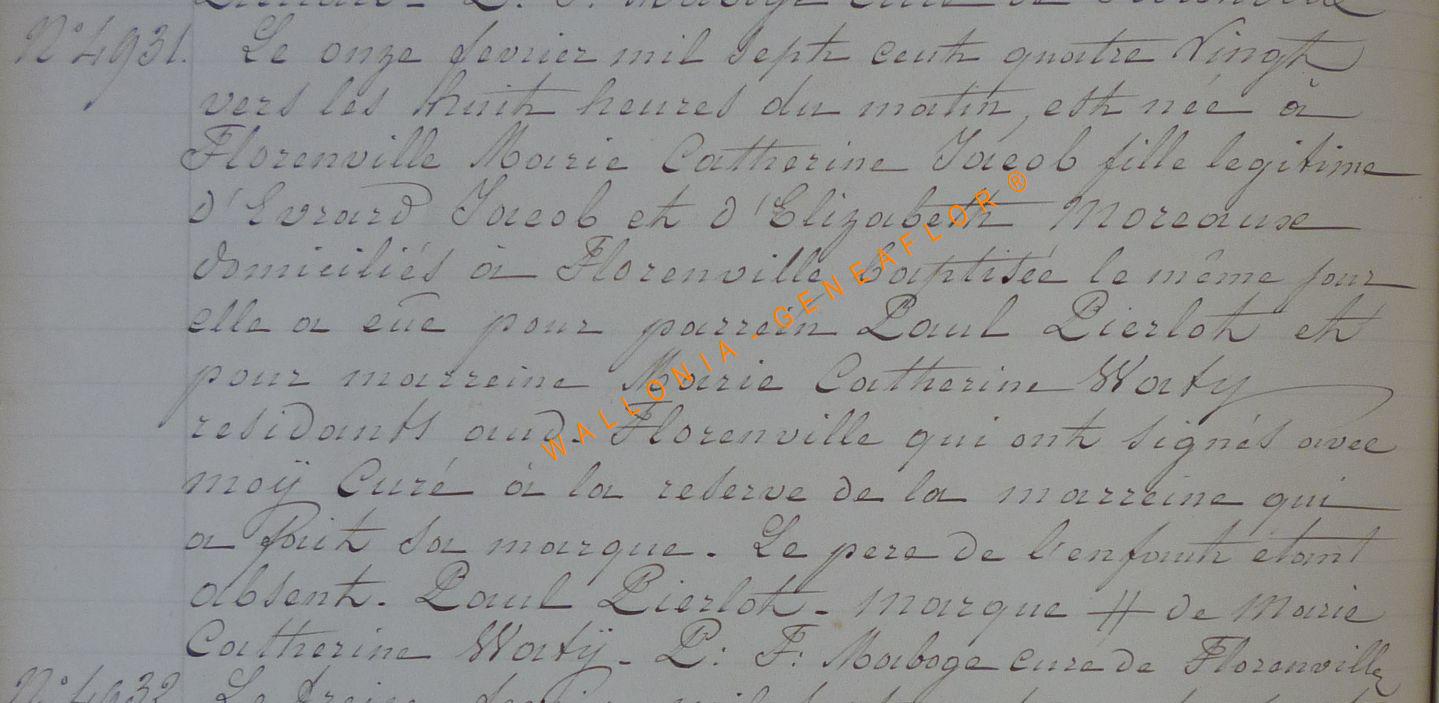 P. F. Maboge curé de Florenville
N° 4931. Le onze fevrier mil sept cent quatre Vingt
vers les huit heures du matin, est née à
Florenville Marie Catherine Jacob fille legitime
d'Evrard Jacob et d'Elizabeth Moreaux
domiciliés à Florenville baptisée le même jour
elle a eüe pour parrein Paul Pierlot et
pour marreine Marie Catherine Waty
residants aud. Florenville qui ont signés avec
moÿ Curé à la reserve de la marreine qui
a fait sa marque. Le pere de l'enfant étant
absent. Paul Pierlot. marque # de Marie
Catherine Watÿ. P: F: Maboge curé de Florenville
N° 4932 Le treize fevrier mil sept
WALLONIA - GENEAFLOR ®